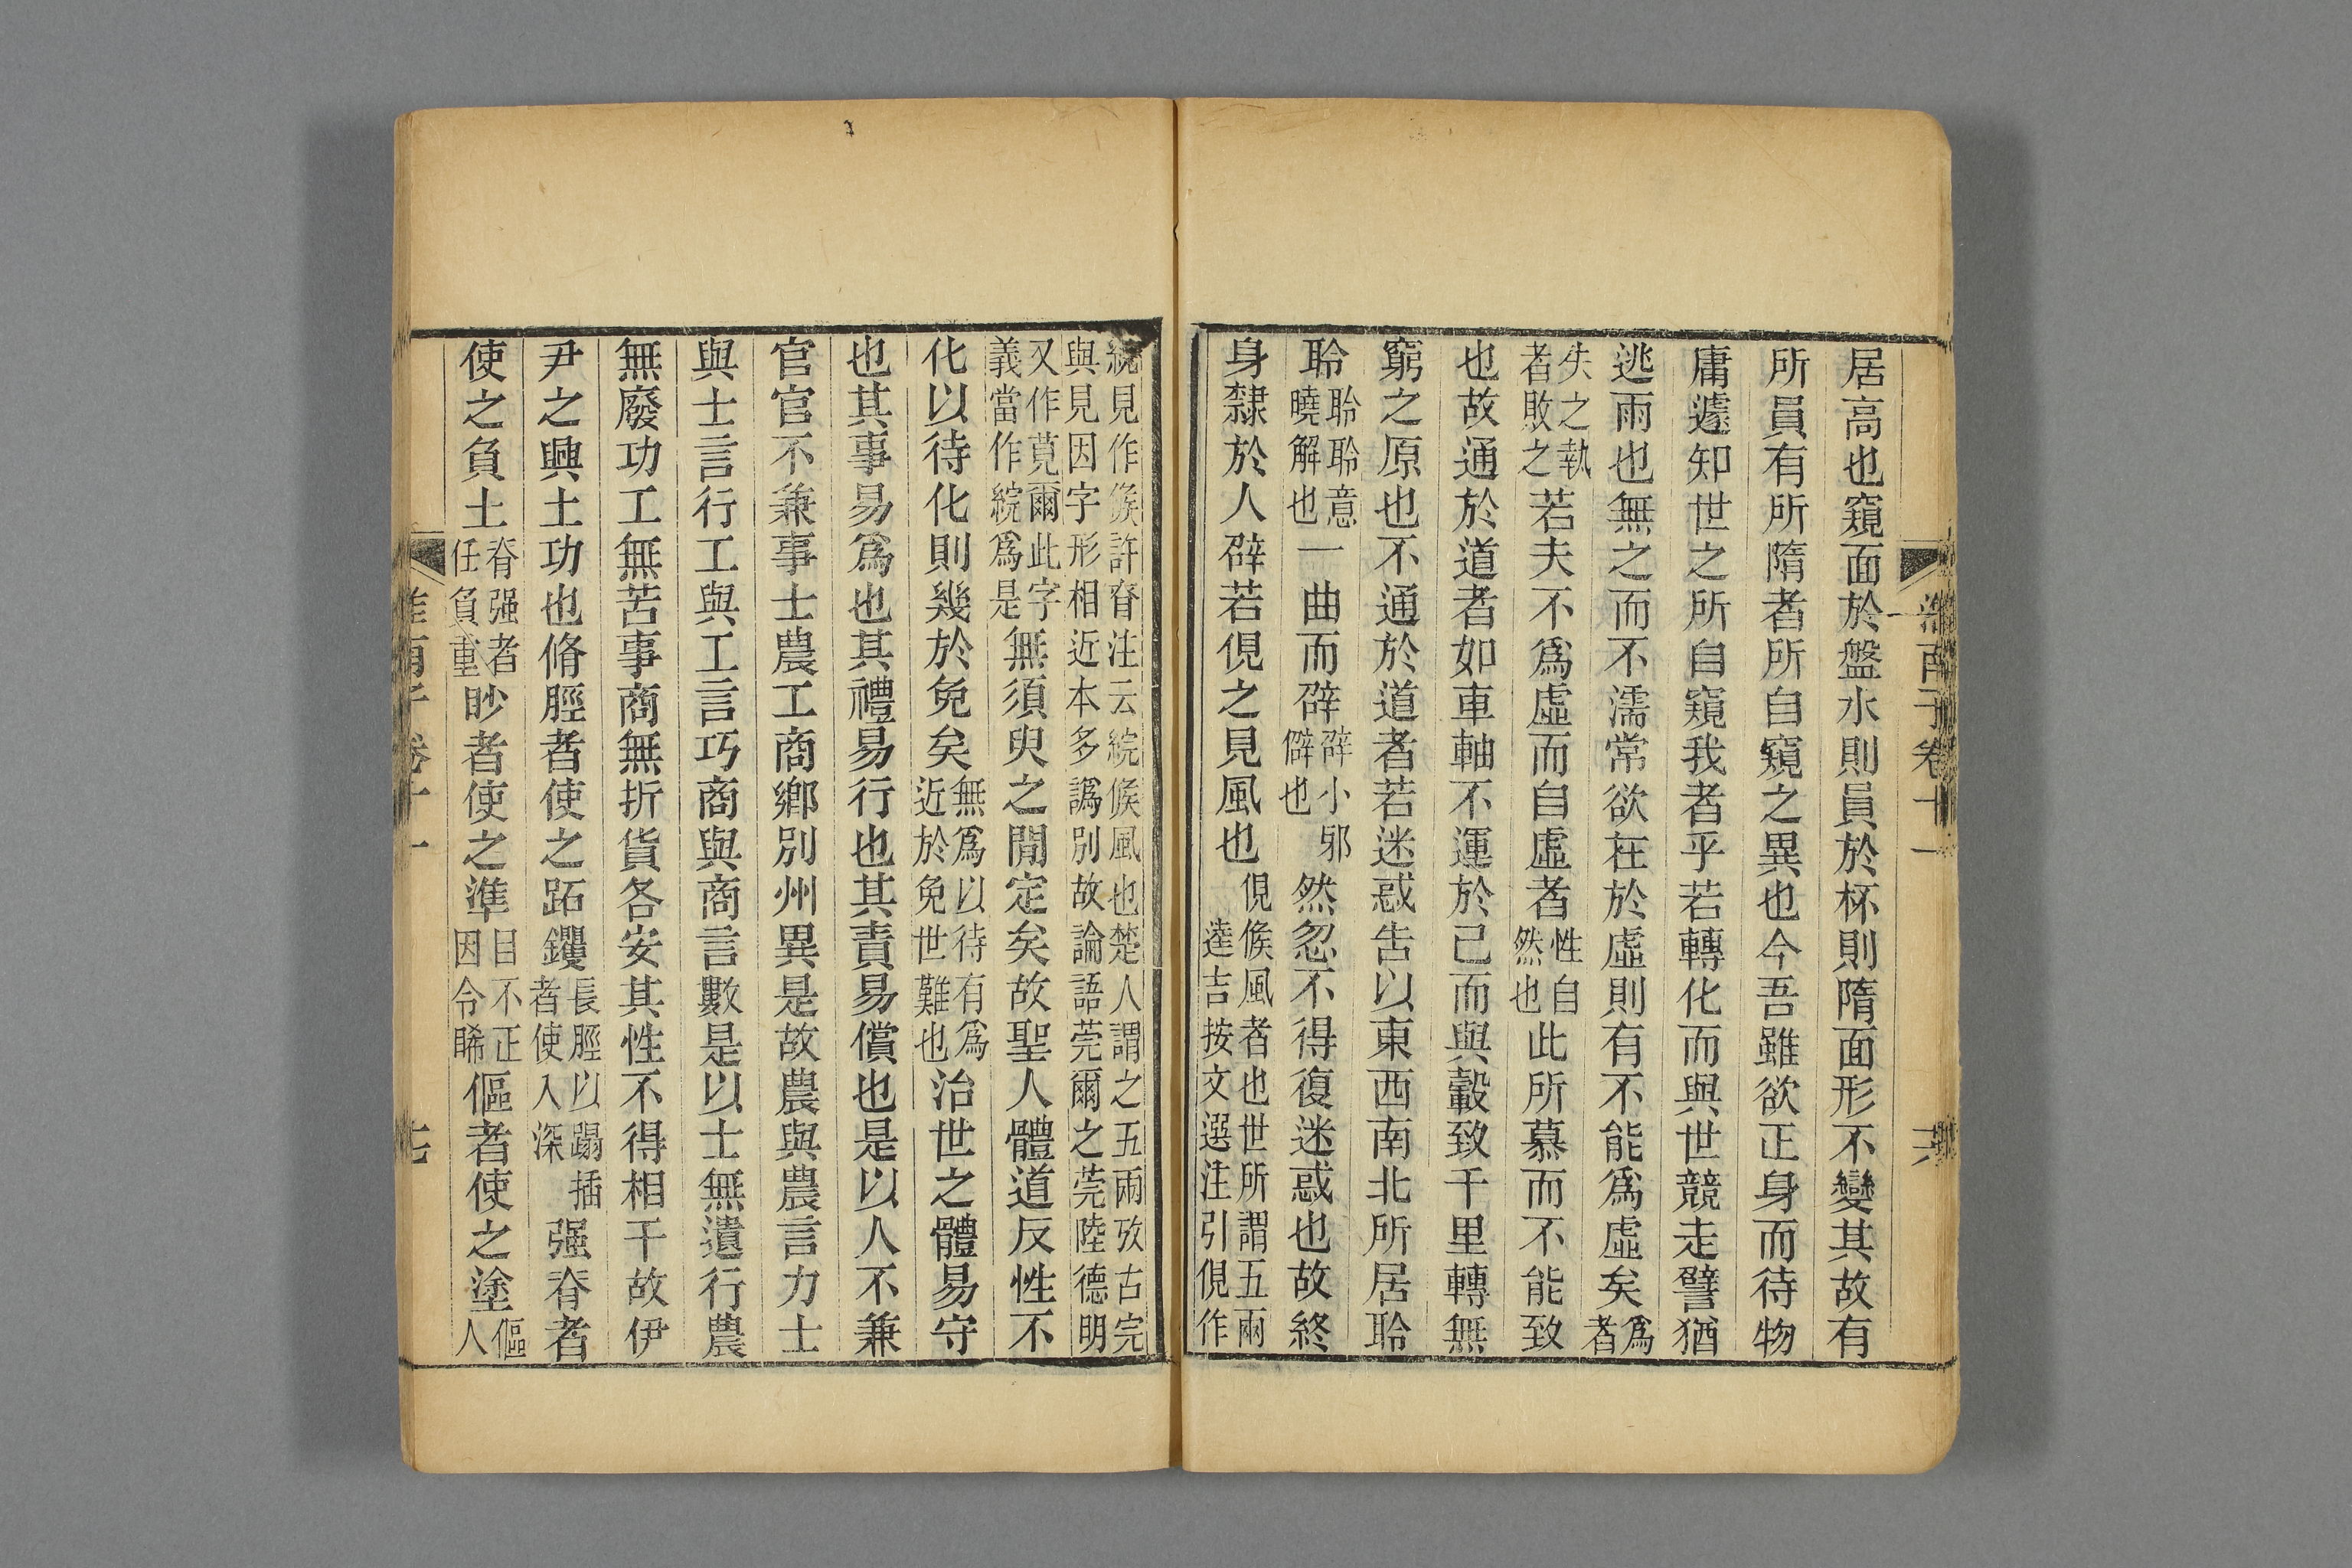 淮南子卷十一
居高也窺面於盤水則員於杯則隋面形不變其故有
所員有所隋者所自窺之異也今吾雖欲正身而待物
庸遽知世之所自窺我者乎若轉化而與世競走譬猶
逃雨也無之而不濡常欲在於虛則有不能爲虛矣爲者
失之執者敗之若夫不爲虛而自虛者性自然也此所慕而不能致
也故通於道者如車軸不運於己而與轂致千里轉無
窮之原也不通於道者若迷惑告以東西南北所居聆
聆聆聆意曉解也一曲而辟辟小邪僻也然忽不得復迷惑也故終
身隸於人辟若俔之見風也俔候風者也世所謂五兩逵吉按文選注引俔作
綄見作候許脊注云綄候風也楚人謂之五兩攷古完
與見因字形相近本多譌別故論語莞爾之莞陸德明
又作莧爾此字義當作綄爲是無須臾之閒定矣故聖人體道反性不
化以待化則幾於免矣無爲以待有爲近於免世難也治世之體易守
也其事易爲也其禮易行也其責易償也是以人不兼
官官不兼事士農工商鄉別州異是故農與農言力士
與士言行工與工言巧商與商言數是以士無遺行農
無廢功工無苦事商無折貨各安其性不得相干故伊
尹之興土功也脩脛者使之跖钁長脛以蹋插者使入深强脊者
使之負土脊强者任負重眇者使之準目不正因令睎傴者使之塗傴人
淮南子卷十一